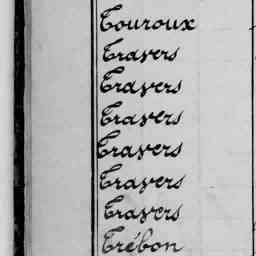 Touroux
Travers
Travers
Travers
Travers
Travers
Travers
Trébon